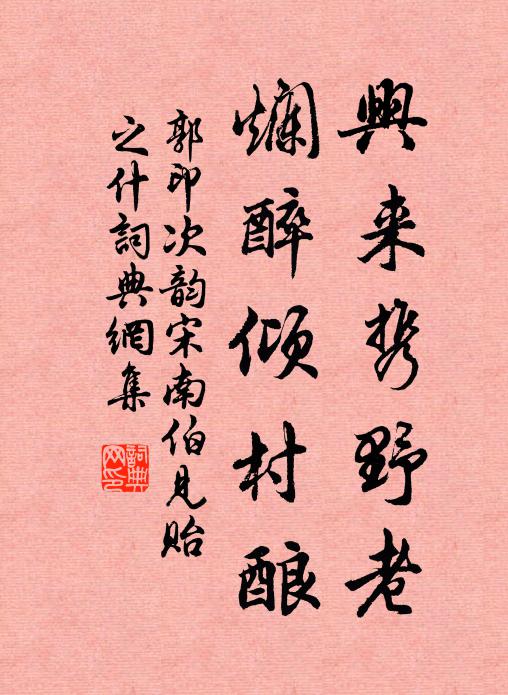 興来携野老
爛醉傾村酿
郭印次韵宋南伯見貽
之什詞典網集
詞典网印